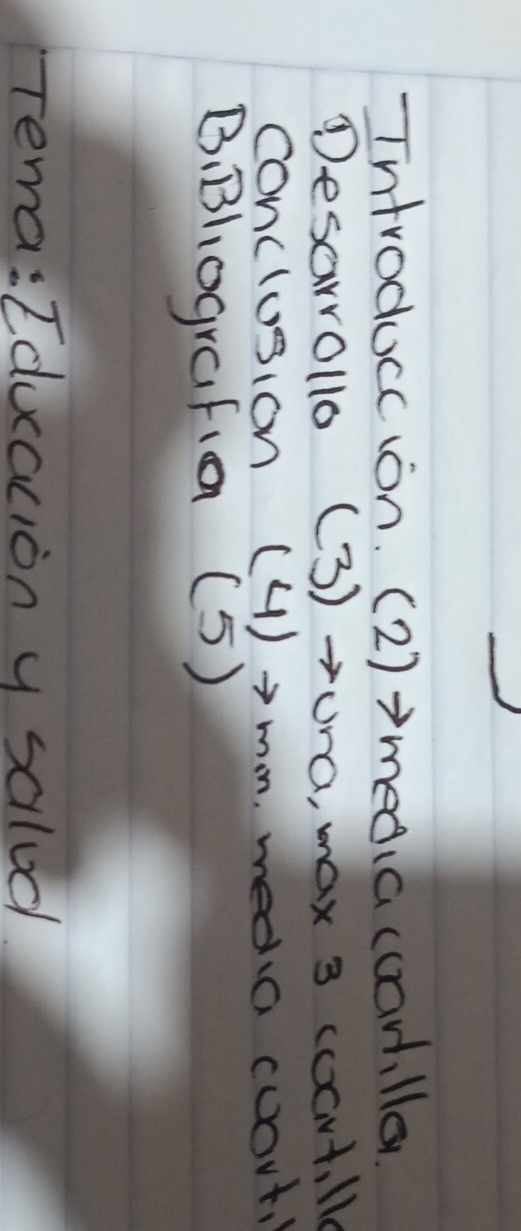 Introducción. (2) → media cuartilla.
Desarrollo (3) → una, max 3 cuartilla
Conclusion (4) → min. media cuarti
BiBliografia (5)
Tema: Educación y salud